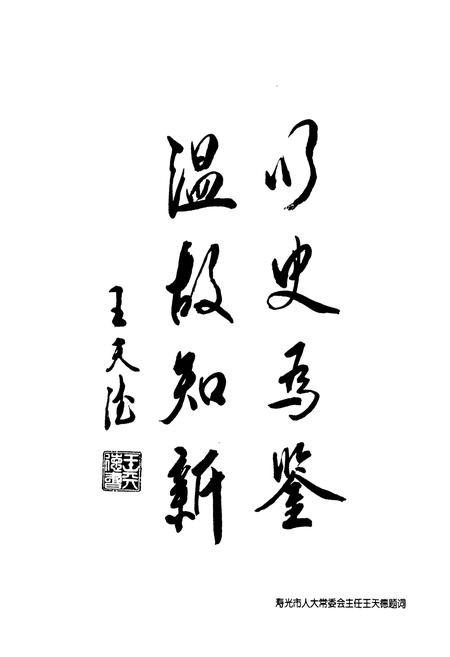 以史为鉴
温故知新
王天德
王天德
寿光市人大常委会主任王天德题词